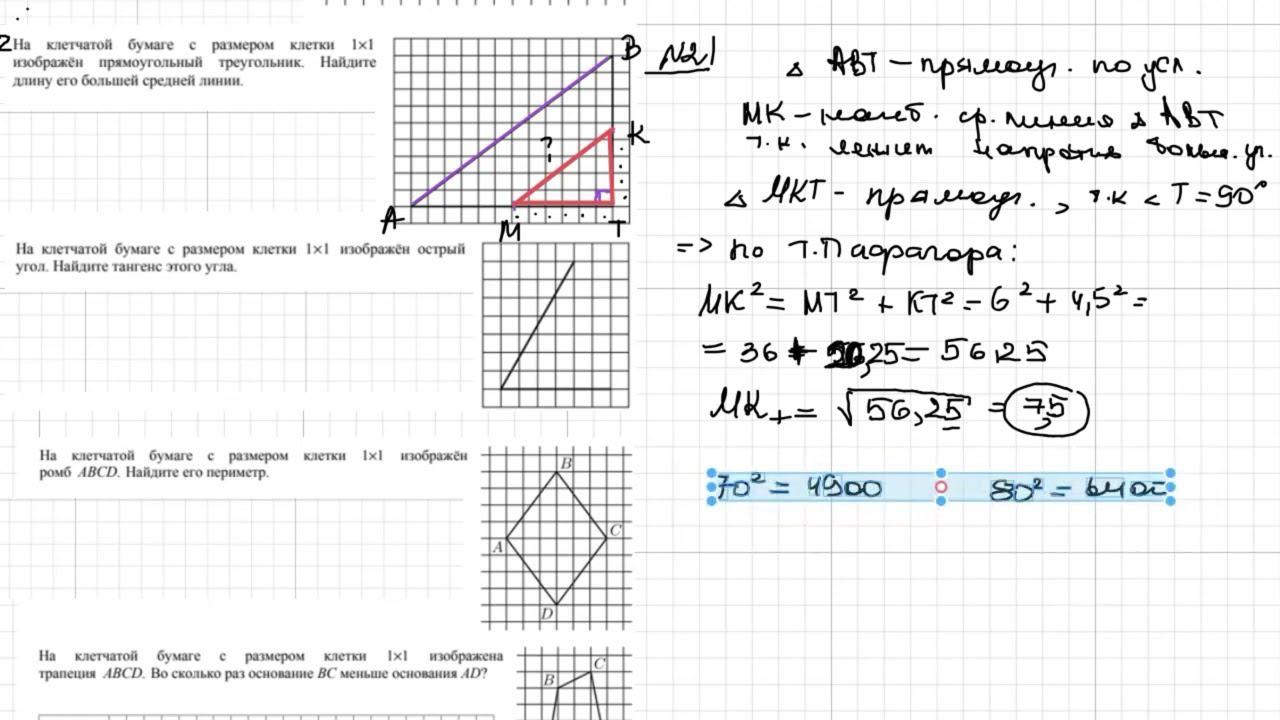 2
На клетчатой бумаге с размером клетки 1×1
изображён прямоугольный треугольник. Найдите
длину его большей средней линии.
B
K
?
A
M
T
На клетчатой бумаге с размером клетки 1×1 изображён острый
угол. Найдите тангенс этого угла.
На клетчатой бумаге с размером клетки 1×1 изображён
ромб ABCD. Найдите его периметр.
B
A
C
D
На клетчатой бумаге с размером клетки 1×1 изображена
трапеция ABCD. Во сколько раз основание BC меньше основания AD?
C
B
№21
△ ABT – прямоуг. по усл.
MK – наиб. ср. линия △ ABT
т.к. лежит напротив больш. уг.
△ MKT – прямоуг., т.к < T = 90°
=> по т. Пифагора:
MK² = MT² + KT² = 6² + 4,5² =
= 36 + 20,25 = 56,25
MK = √56,25 = 7,5
70² = 4900 80² = 6400